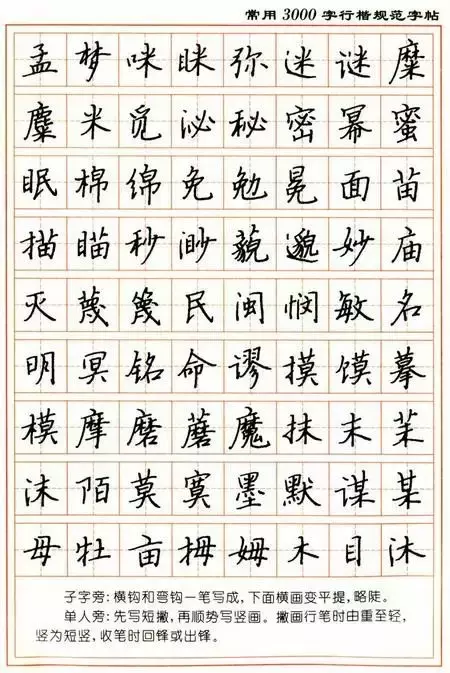 常用3000字行楷规范字帖
孟梦咪眯弥迷谜糜
麋米觅泌秘密幂蜜
眠棉绵免勉冕面苗
描瞄秒渺藐邈妙庙
灭蔑篾民闽悯敏名
明冥铭命谬摸馍摹
模摩磨蘑魔抹末茉
沫陌莫寞墨默谋某
母牡亩拇姆木目沐
子字旁:横钩和弯钩一笔写成,下面横画变平提,略陡。
单人旁:先写短撇,再顺势写竖画。撇画行笔时由重至轻,
竖为短竖,收笔时回锋或出锋。